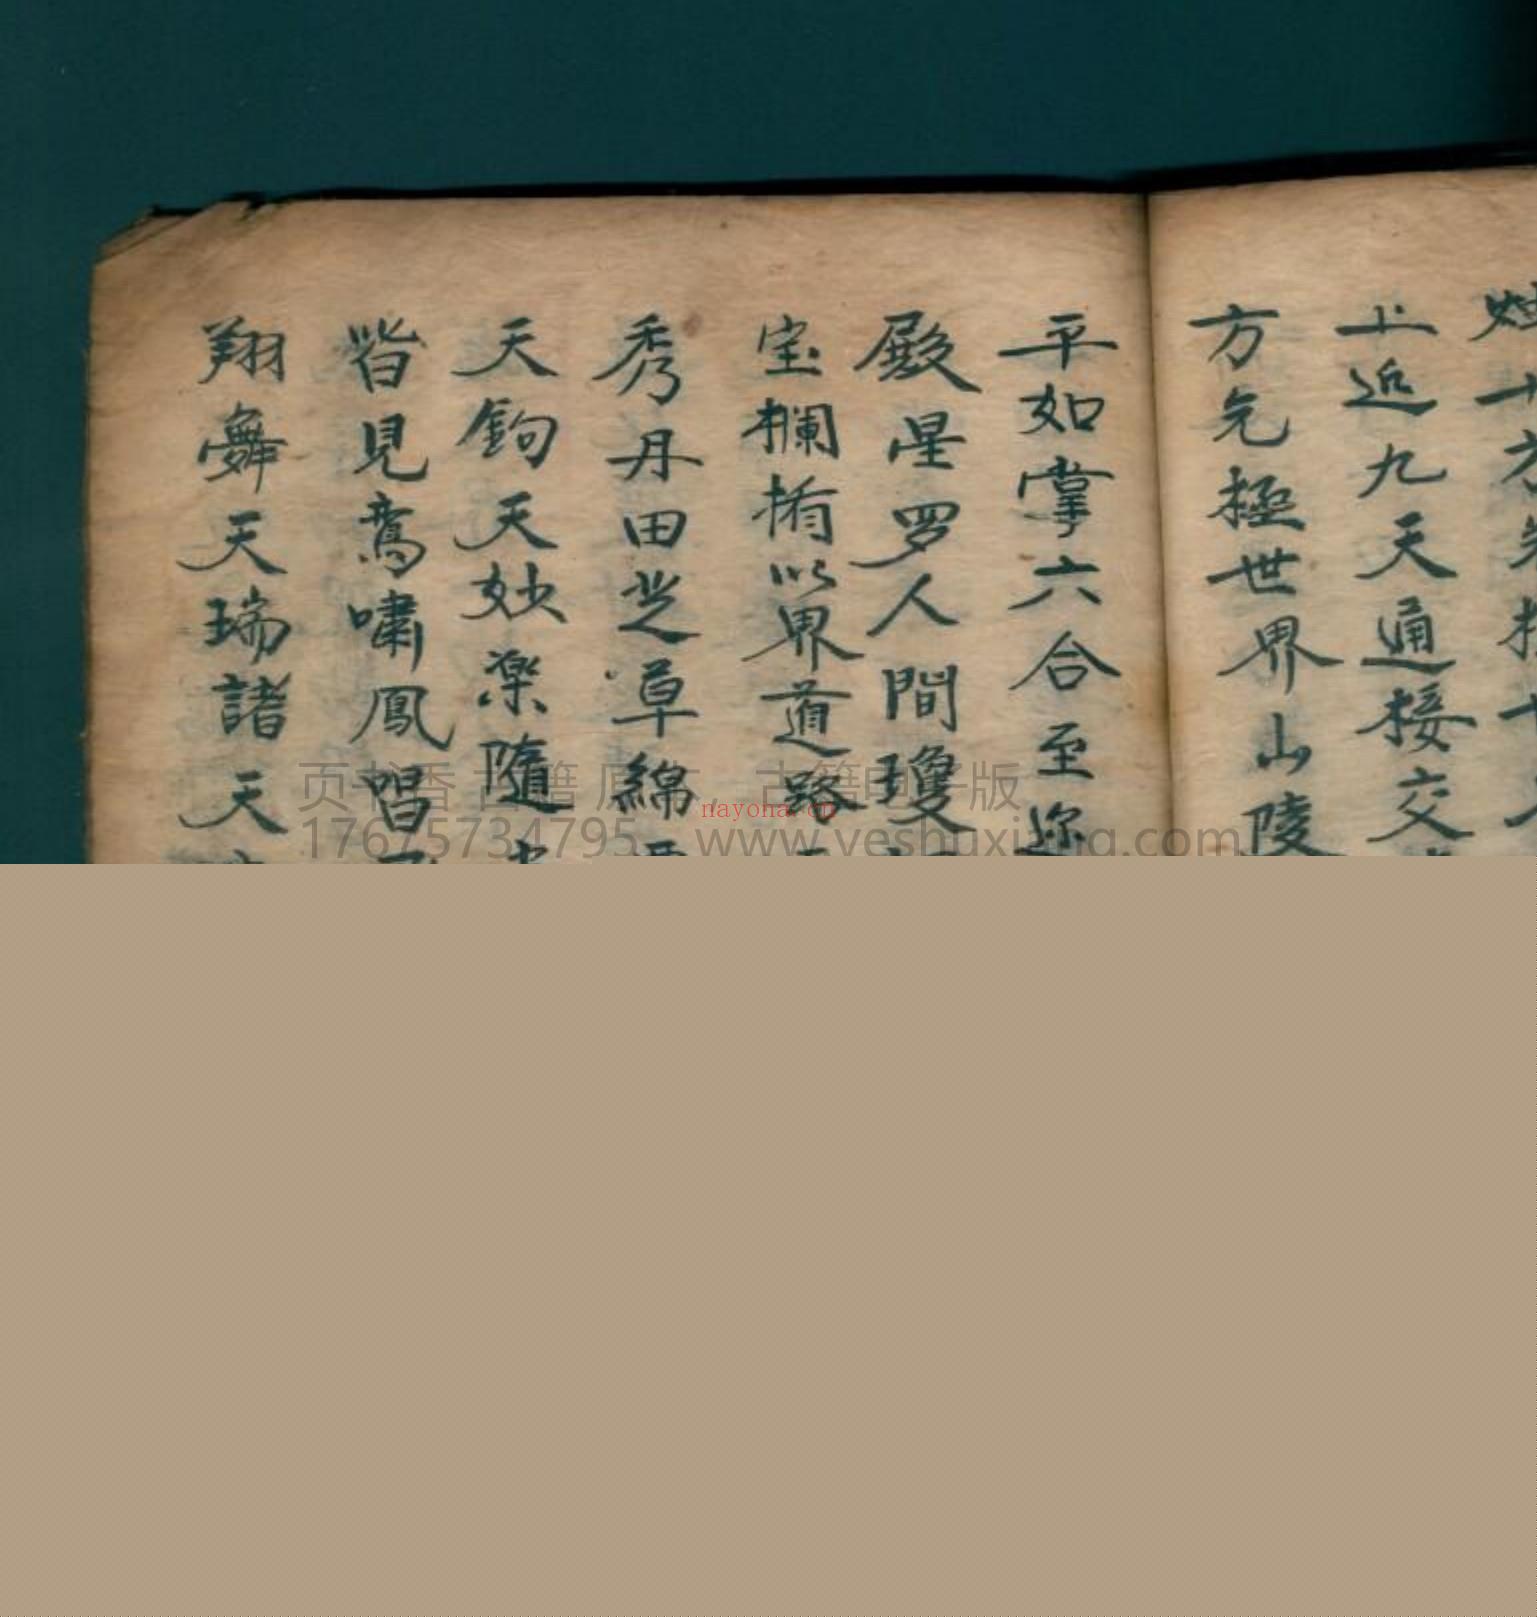 十方
上近九天通接交
方炁極世界山陵
平如掌六合至
殿星罗人間瓊
宝欄楯以界道路
秀丹田芝草綿
天鈞天妙楽隨
皆見鸞嘯鳳唱
翔舞天瑞諸天
nayona.cn
17675734795 www.yeshuxiang.com